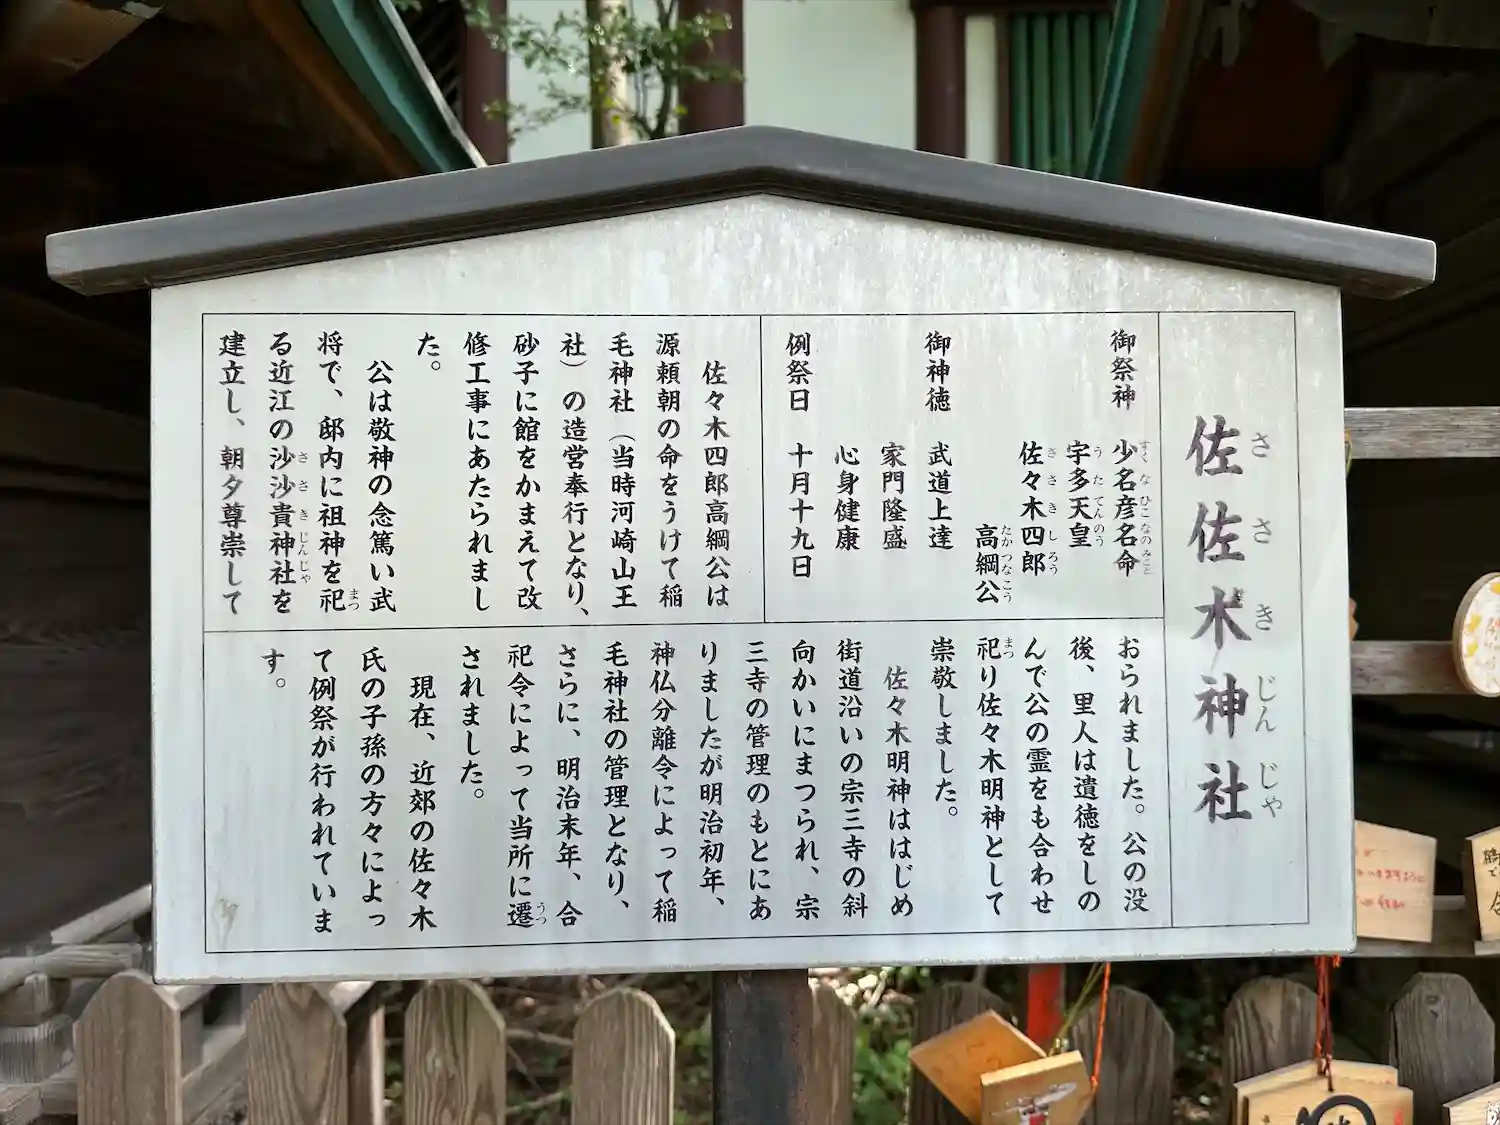 佐佐木神社
さ さ き じん じゃ
御祭神 少名彦名命
すく な ひこ なの みこと
宇多天皇
う た てん のう
佐々木四郎
さ さ き し ろう
高綱公
たか つな こう
御神徳 武道上達
家門隆盛
心身健康
例祭日 十月十九日
佐々木四郎高綱公は
源頼朝の命をうけて稲
毛神社(当時河崎山王
社)の造営奉行となり、
砂子に館をかまえて改
修工事にあたられまし
た。
公は敬神の念篤い武
将で、邸内に祖神を祀
まつ
る近江の沙沙貴神社を
さ さ き じん じゃ
建立し、朝夕尊崇して
おられました。公の没
後、里人は遺徳をしの
んで公の霊をも合わせ
祀り佐々木明神として
まつ
崇敬しました。
佐々木明神ははじめ
街道沿いの宗三寺の斜
向かいにまつられ、宗
三寺の管理のもとにあ
りましたが明治初年、
神仏分離令によって稲
毛神社の管理となり、
さらに、明治末年、合
祀令によって当所に遷
うつ
されました。
現在、近郊の佐々木
氏の子孫の方々によっ
て例祭が行われていま
す。